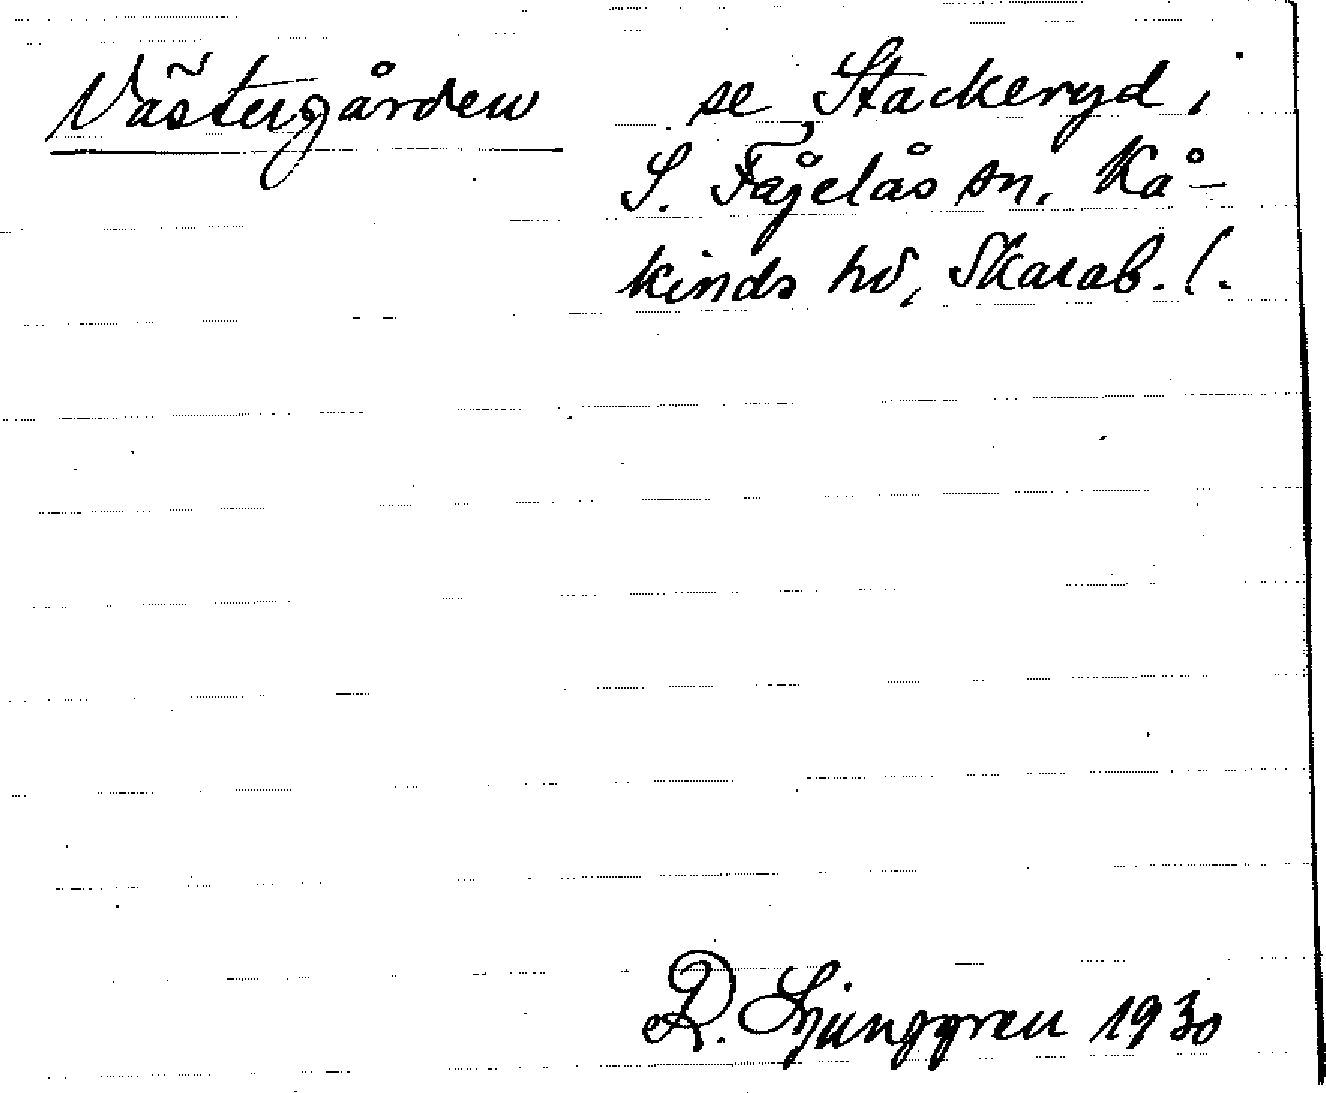 Västergården se Stackeryd i
S. Fågelås sn, Kå-
kinds hd, Skarab. l.
R. Ljunggren 1930